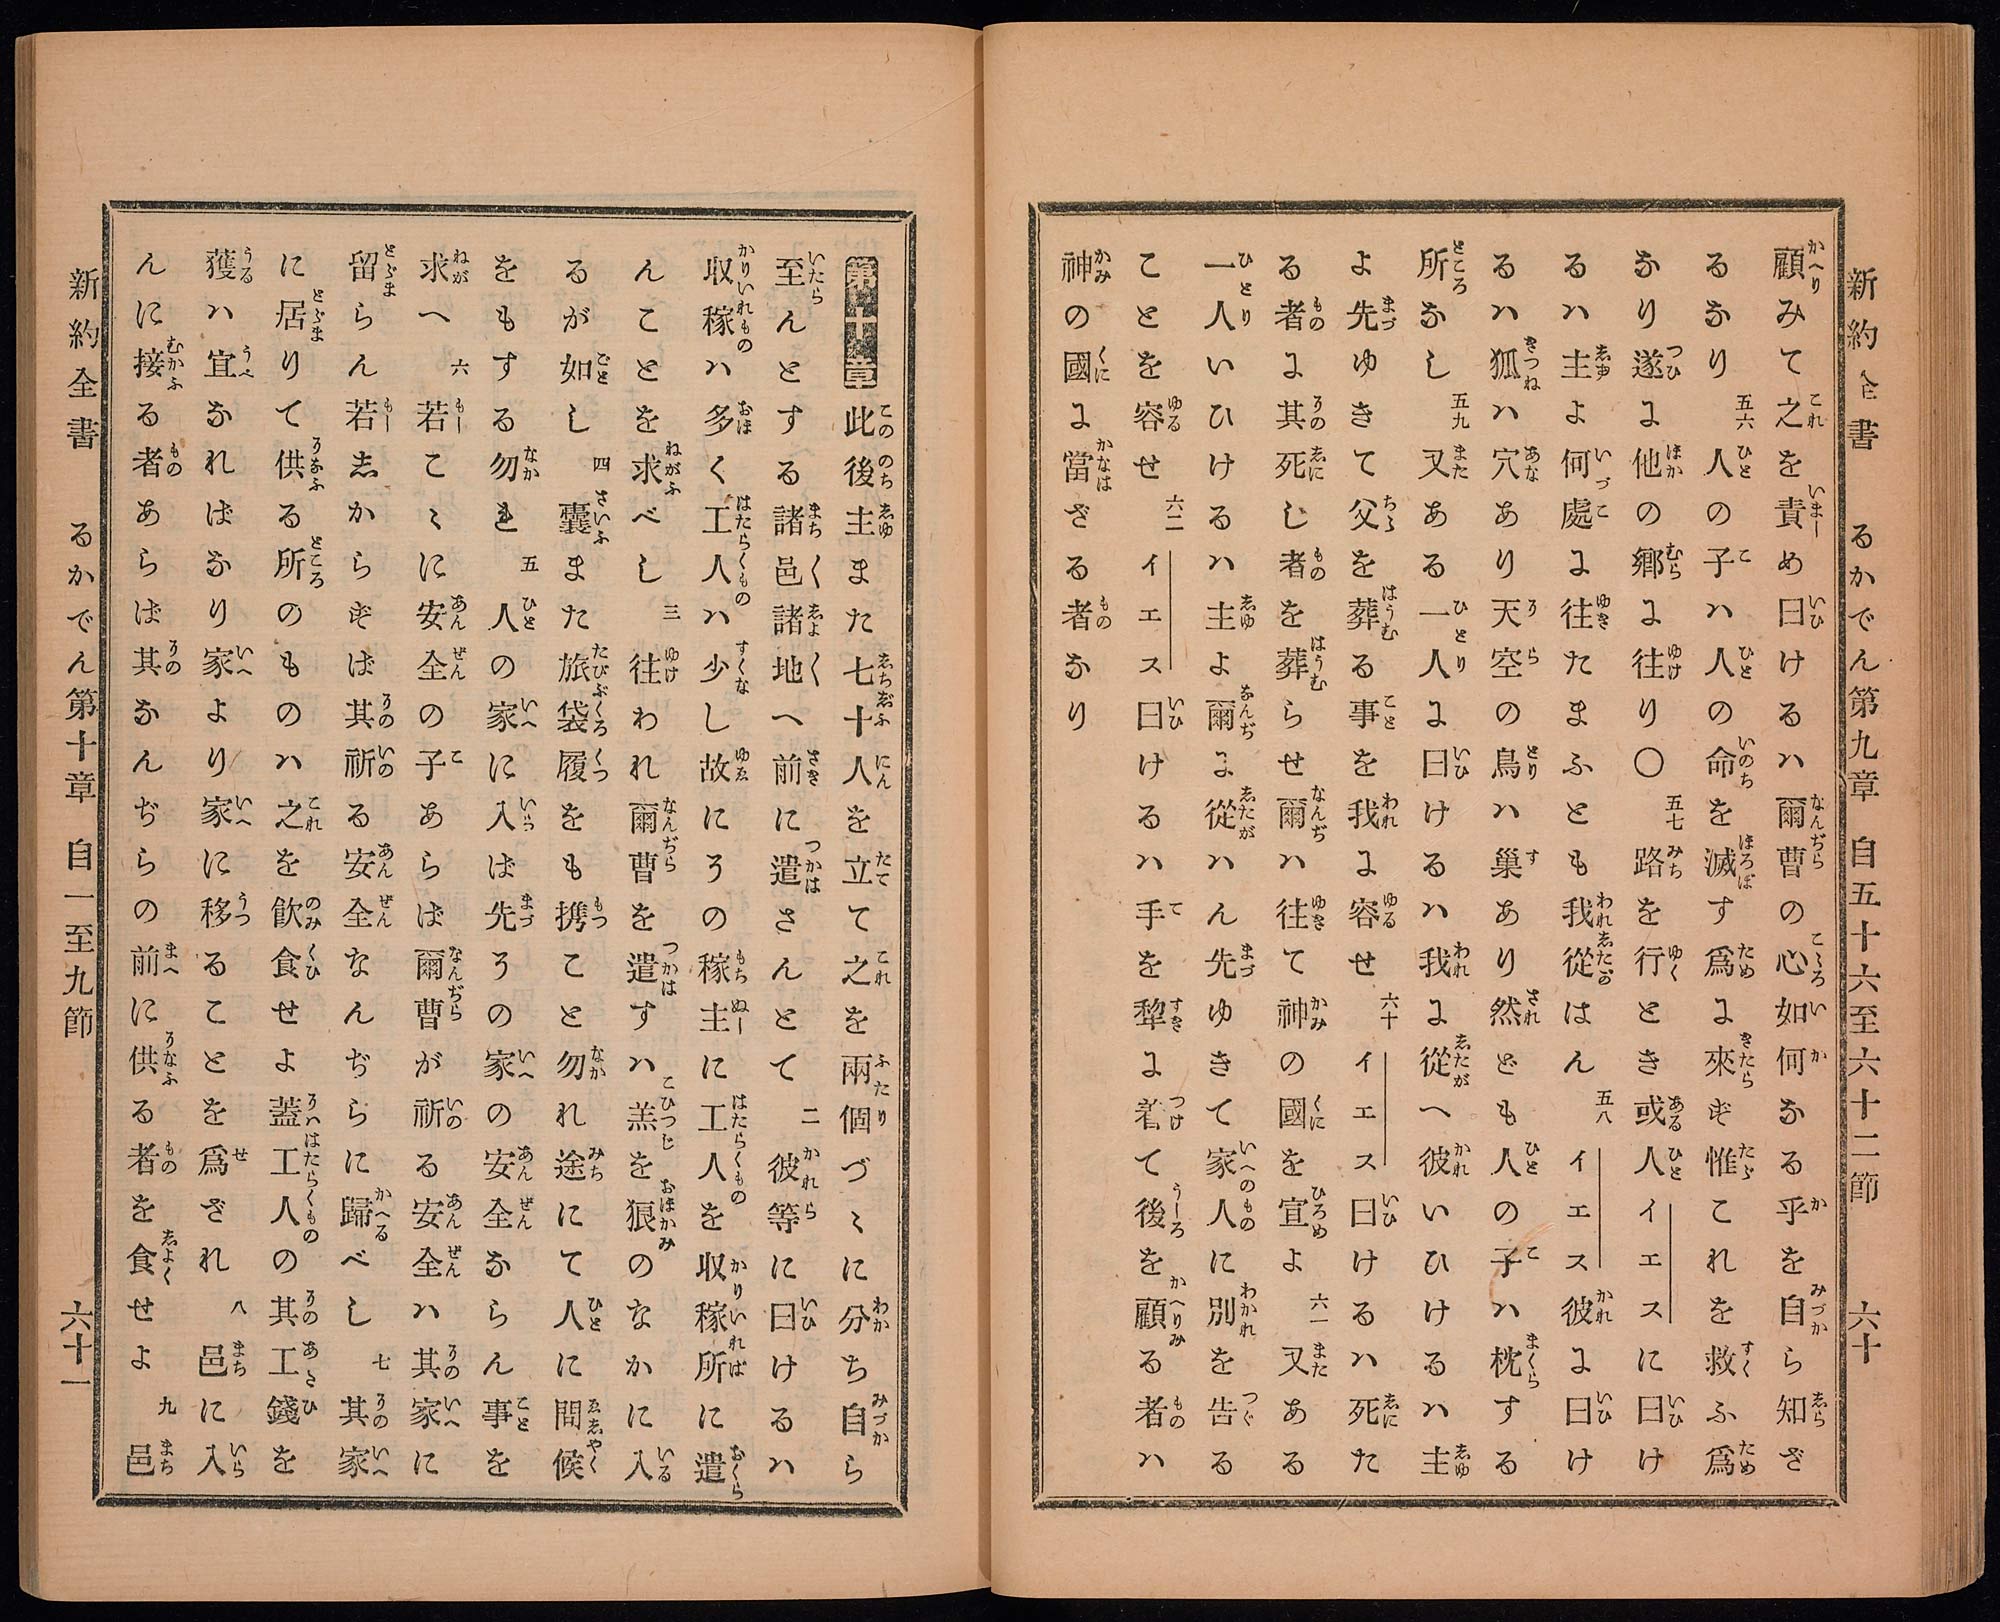 新約全書　るかでん第九章　自五十六至六十二節　六十
顧みて之を責め曰けるハ爾曹の心如何なる乎を自ら知ざ
るなり 五六 人の子ハ人の命を滅す爲に來ず惟これを救ふ爲
なり遂に他の郷に往り〇 五七 路を行とき或人イエスに曰け
るハ主よ何處に往たまふとも我從はん 五八 イエス彼に曰け
るハ狐ハ穴あり天空の鳥ハ巢あり然ども人の子ハ枕する
所なし 五九 又ある一人に曰けるハ我に從へ彼いひけるハ主
よ先ゆきて父を葬る事を我に容せ 六十 イエス曰けるハ死た
る者に其死し者を葬らせ爾ハ往て神の國を宣よ 六一 又ある
一人いひけるハ主よ爾に從ハん先ゆきて家人に別を告る
ことを容せ 六二 イエス曰けるハ手を犂に着て後を顧る者ハ
神の國に當ざる者なり
第十章 此後主また七十人を立て之を兩個づゝに分ち自ら
至んとする諸邑諸地へ前に遣さんとて 二 彼等に曰けるハ
収稼ハ多く工人ハ少し故にその稼主に工人を収稼所に遣
んことを求べし 三 往われ爾曹を遣すハ羔を狼のなかに入
るが如し 四 囊また旅袋履をも携こと勿れ途にて人に問候
をもする勿れ 五 人の家に入ば先その家の安全ならん事を
求へ 六 若こゝに安全の子あらば爾曹が祈る安全ハ其家に
留らん若志からずば其祈る安全なんぢらに歸べし 七 其家
に居りて供る所のものハ之を飮食せよ蓋工人の其工錢を
獲ハ宜なればなり家より家に移ることを爲ざれ 八 邑に入
んに接る者あらば其なんぢらの前に供る者を食せよ 九 邑
新約全書　るかでん第十章　自一至九節　六十一